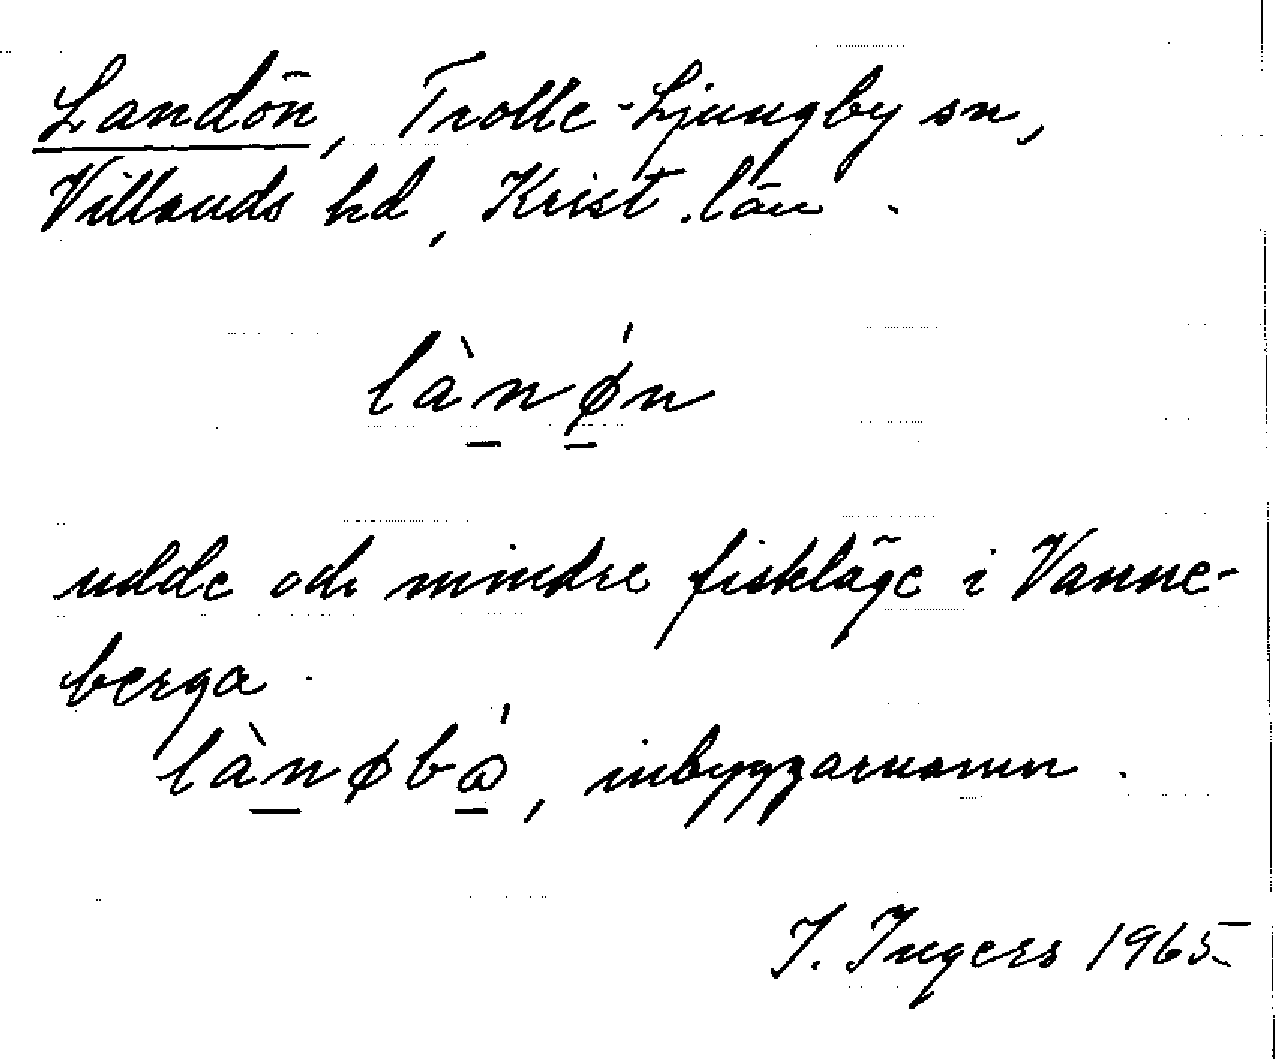 Landön, Trolle-Ljungby sn,
Villands hd, Krist. län.
lànǿn
udde och mindre fiskläge i Vanne-
berga.
lànøbå, inbyggarnamn.
I. Ingers 1965